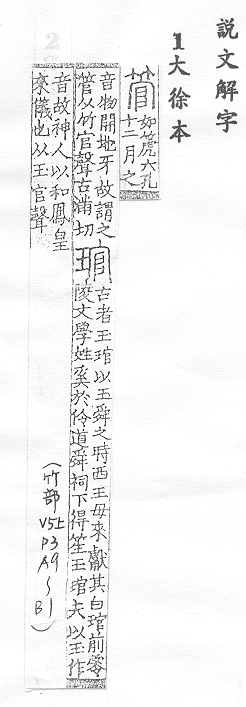 說文解字
1大徐本
管
如篪六孔
十二月之
音物開地牙故謂之
管从竹官聲古滿切
琯
古者玉琯以玉舜之時西王母來獻其白琯前零
陵文學姓奚於伶道舜祠下得笙玉琯夫以玉作
音故神人以和鳳皇
來儀也从玉官聲
(竹部 V5上 P3 A9~B1)